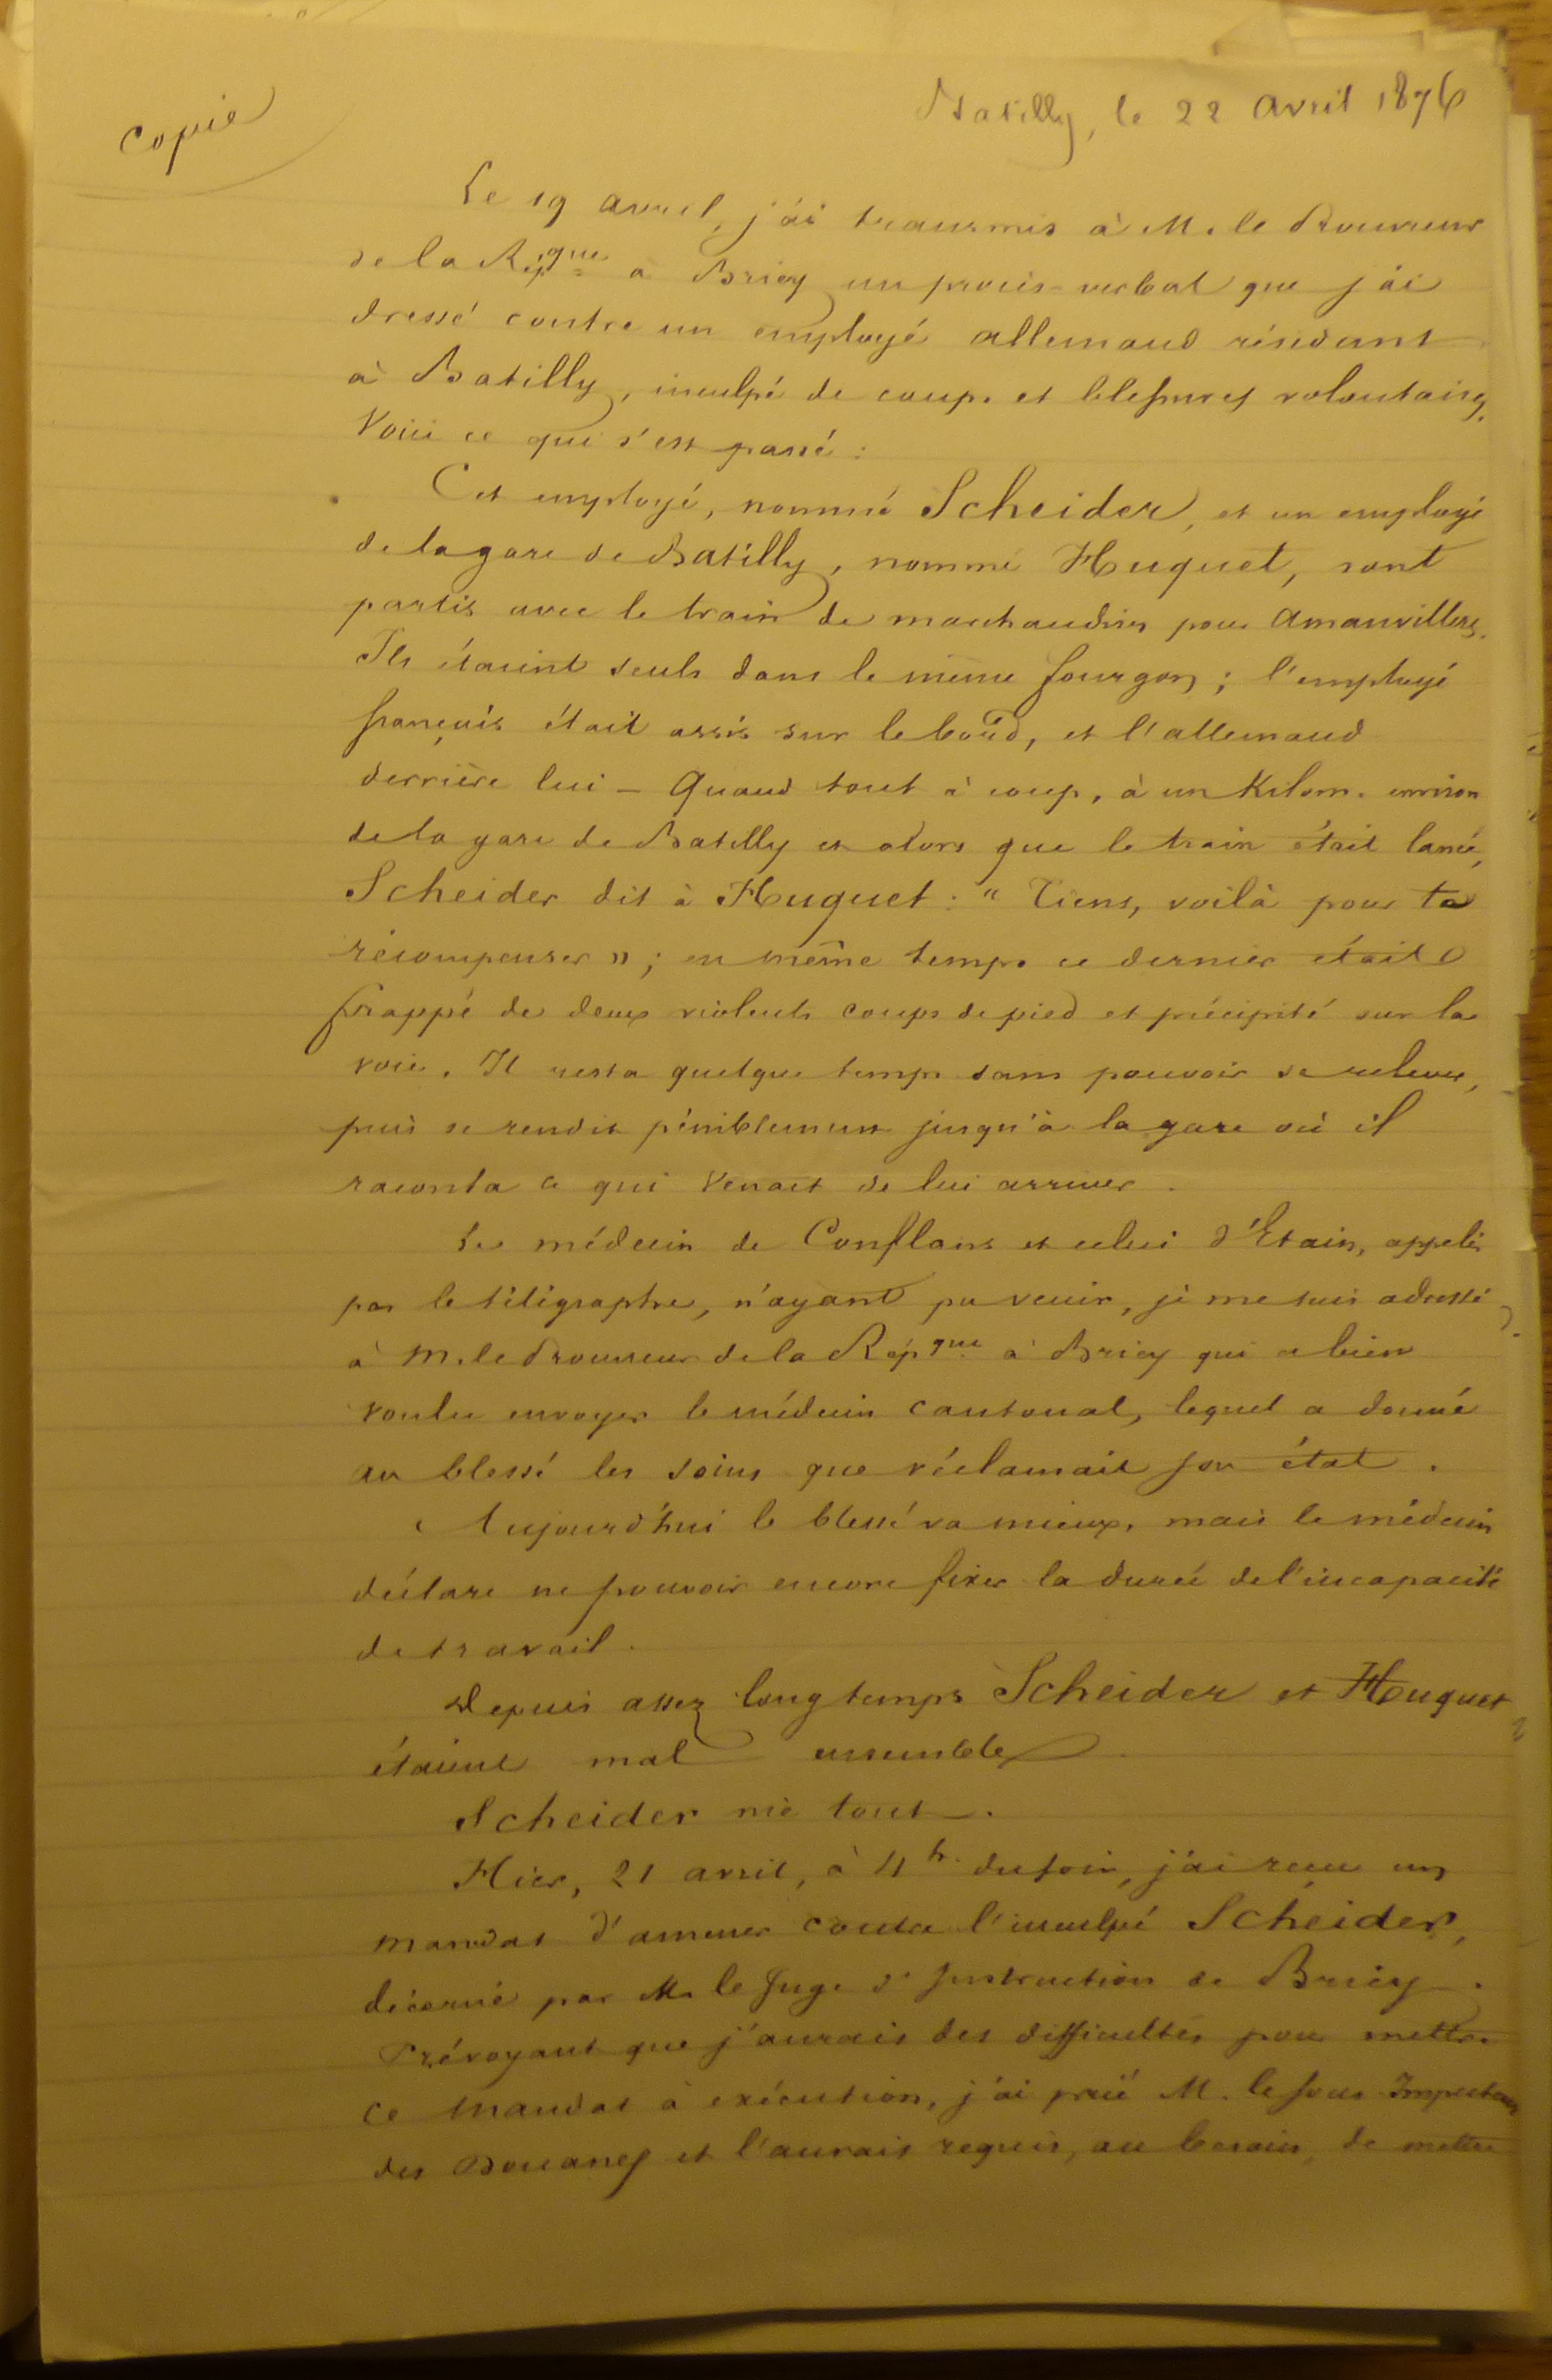 Copie
Batilly, le 22 avril 1876
Le 19 avril, j'ai transmis à M. le Procureur
de la Rép.que à Briey un procès-verbal que j'ai
dressé contre un employé allemand résidant
à Batilly, inculpé de coups et blessures volontaires.
Voici ce qui s'est passé :
Cet employé, nommé Scheider, et un employé
de la gare de Batilly, nommé Huguet, sont
partis avec le train de marchandises pour Amanvillers.
Ils étaient seuls dans le même fourgon ; l'employé
français était assis sur le bord, et l'allemand
derrière lui — Quand tout à coup, à un Kilom. environ
de la gare de Batilly et alors que le train était lancé,
Scheider dit à Huguet : " Tiens, voilà pour te
récompenser » ; en même temps ce dernier était
frappé de deux violents coups de pied et précipité sur la
voie. Il resta quelque temps sans pouvoir se relever,
puis se rendit péniblement jusqu'à la gare où il
raconta ce qui venait de lui arriver.
Le médecin de Conflans et celui d'Etain, appelés
par le télégraphe, n'ayant pu venir, je me suis adressé
à M. le Procureur de la Rép.que à Briey qui a bien
voulu envoyer le médecin cantonal, lequel a donné
au blessé les soins que réclamait son état.
Aujourd'hui le blessé va mieux, mais le médecin
déclare ne pouvoir encore fixer la durée de l'incapacité
de travail.
Depuis assez longtemps Scheider et Huguet
étaient mal ensemble.
Scheider nie tout.
Hier, 21 avril, à 4 h. du soir, j'ai reçu un
mandat d'amener contre l'inculpé Scheider,
décerné par M. le Juge d'Instruction de Briey.
Prévoyant que j'aurais des difficultés pour mettre
ce mandat à exécution, j'ai prié M. le sous Inspecteur
des Douanes et l'aurais requis, au besoin, de mettre